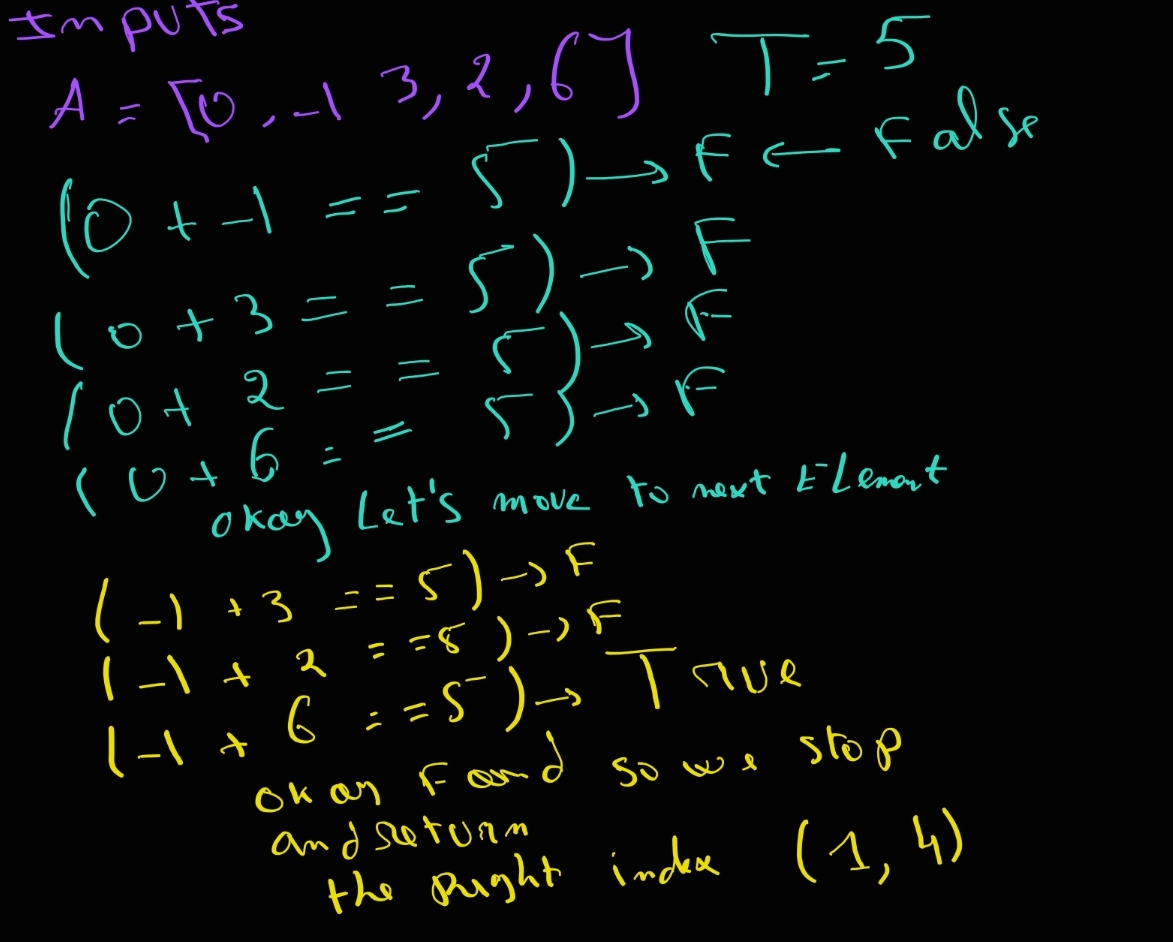 Inputs
A = [0, -1 3, 2, 6] T = 5
(0 + -1 == 5) → F ← False
(0 + 3 == 5) → F
(0 + 2 == 5) → F
(0 + 6 == 5) → F
okay Let's move to next Element
(-1 + 3 == 5) → F
(-1 + 2 == 5) → F
(-1 + 6 == 5) → True
okay Found so we stop
and return
the right index (1, 4)